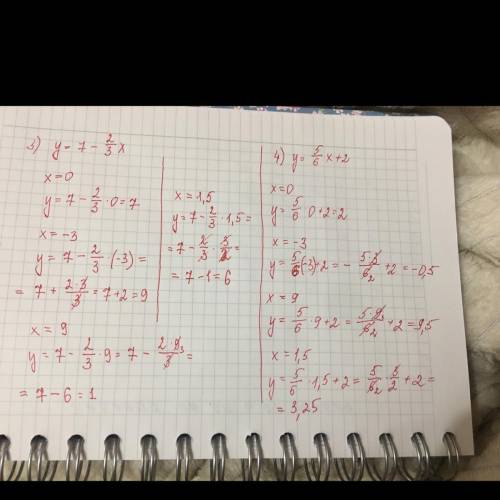 3) y = 7 - 2/3 x
x = 0
y = 7 - 2/3 · 0 = 7
x = -3
y = 7 - 2/3 · (-3) =
= 7 + 2·3/3 = 7 + 2 = 9
x = 9
y = 7 - 2/3 · 9 = 7 - 2·9₃/3 =
= 7 - 6 = 1
x = 1,5
y = 7 - 2/3 · 1,5 =
= 7 - 2/3 · 3/2 =
= 7 - 1 = 6
4) y = 5/6 x + 2
x = 0
y = 5/6 · 0 + 2 = 2
x = -3
y = 5/6 (-3) + 2 = - 5·3/6₂ + 2 = -0,5
x = 9
y = 5/6 · 9 + 2 = 5·9₃/6₂ + 2 = 9,5
x = 1,5
y = 5/6 · 1,5 + 2 = 5/6₂ · 3/2 + 2 =
= 3,25